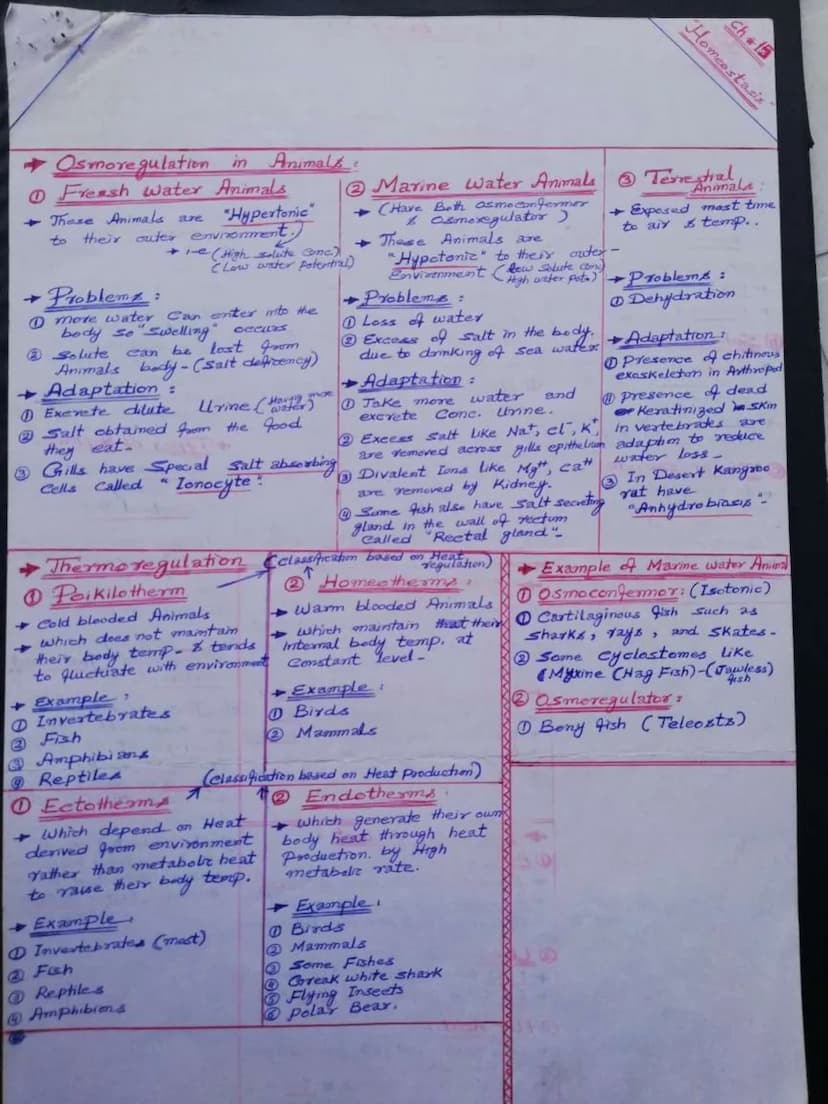 Ch # 15
"Homeostasis"
→ Osmoregulation in Animals :
① Fresh Water Animals
→ These Animals are "Hypertonic"
to their outer environment.)
→ i-e (High solute conc.)
(Low water potential)
→ Problems :
① more water can enter into the
body so "swelling" occurs
② Solute can be lost from
Animals body - (salt deficency)
→ Adaptation :
① Excrete dilute Urine (Having more
water)
② Salt obtained from the food
they eat-
③ Gills have Special Salt absorbing
Cells called "Ionocyte".
② Marine Water Animals
→ (Have Both Osmoconfermer
& Osmoregulator)
→ These Animals are
"Hypotonic" to their outer-
Enviernment (low solute conc)
High water pota)
→ Problems :
① Loss of water
② Excess of salt in the body.
due to drinking of sea water
→ Adaptation :
① Take more water and
excrete Conc. Urine.
② Excess salt like Na+, Cl-, K+,
are removed across gills epithelium
③ Divalent Ions like Mg++, Ca++
are removed by Kidney.
④ Some fish also have Salt secreting
gland in the wall of rectum
Called "Rectal gland"-
③ Terrestial
Animals :
→ Exposed most time
to air & temp..
→ Problems :
① Dehydration
→ Adaptation :
① Presence of chitinous
exoskeleton in Arthropod
② presence of dead
Keratinized skin
in vertebrades are
adaption to reduce
water loss -
③ In Desert Kangroo
rat have
"Anhydrobiasis"-
→ Thermoregulation (classification based on Heat
regulation)
① Poikilotherm
→ Cold blooded Animals
→ Which does not maintain
their body temp- & tends
to fluctuate with environment
→ Example :
① Invertebrates
② Fish
③ Amphibians
④ Reptiles
② Homeotherms :
→ Warm blooded Animals
→ Which maintain that their
Internal body temp. at
Constant level-
→ Example :
① Birds
② Mammals
(classification based on Heat Production)
① Ectotherms
→ Which depend on Heat
derived from environment
rather than metabolic heat
to raise their body temp.
→ Example.
① Invertebrates (most)
② Fish
③ Reptiles
④ Amphibions
② Endotherms.
→ which generate their own
body heat through heat
Production. by High
metabolic rate.
→ Example.
① Birds
② Mammals
③ Some Fishes
④ Greak white shark
⑤ Flying Insects
⑥ Polar Bear.
→ Example of Marine water Animal
① Osmoconfermor : (Isotonic)
① Cartilaginous fish such as
sharks, rays, and skates-
② Some cyclostomes like
Myxine (Hag Fish)-(Jawless)
fish
② Osmoregulator :
① Bony fish (Teleosts)